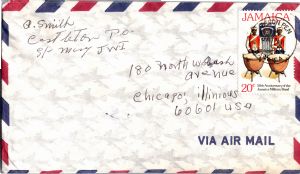 A. Smith
Castleton P.O.
St Mary JWI
180 North Wabash
avenue
Chicago, illinious
60601 USA
JAMAICA
20c
50th Anniversary of the
Jamaica Military Band
VIA AIR MAIL